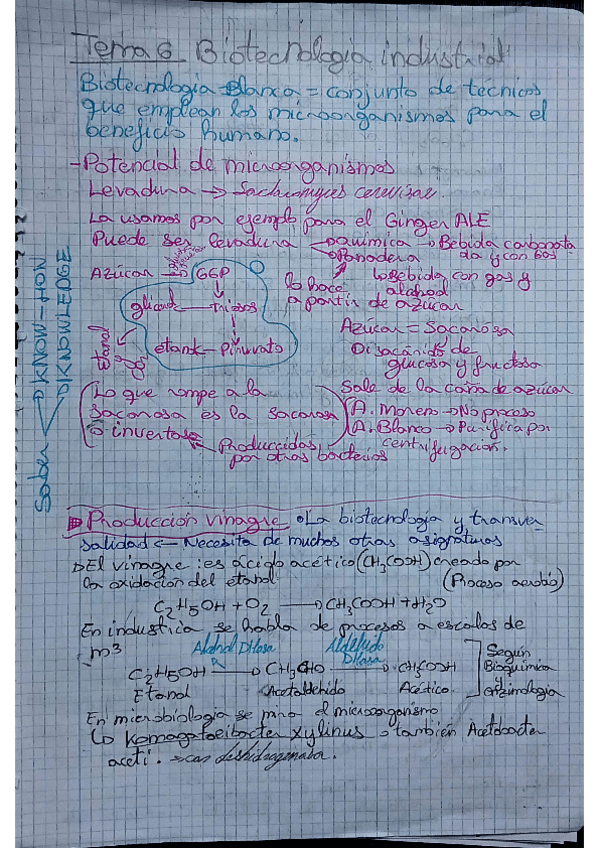 Tema 6 Biotecnología industrial
Biotecnología Blanca = conjunto de técnicas
que emplean los microorganismos para el
beneficio humano.
- Potencial de microorganismos
Levadura → Sacharomyces cerevisae.
La usamos por ejemplo para el Ginger ALE
Puede ser levadura química → Bebida carbonatada y con gas
Panadera
Bebida con gas y alcohol
lo hace a partir de azúcar
Azúcar → G6P
triosas
etanol Piruvato
Etanol
Azúcar = Sacarosa
Disacárido de
glucosa y fructosa
Sale de la caña de azúcar
A. Moreno → No proceso
A. Blanco → Purifica por
centrifugación.
Lo que rompe a la
sacarosa es la sacarosa
o invertasa
Producidas
por otras bacterias
Saber
KNOW-HOW
KNOWLEDGE
Producción vinagre La biotecnología y transver
salidad ← Necesita de muchas otras asignaturas
El vinagre: es ácido acético (CH3COOH) creado por
la oxidación del etanol (Proceso aerobio)
C2H5OH + O2 → CH3COOH + H2O
En industria se habla de procesos a escalas de
m3
Alcohol DHasa Aldehído DHasa
C2H5OH → CH3CHO → CH3COOH
Etanol Acetaldehído Acético.
Según
Bioquímica
y
enzimología
En microbiología se mira el microorganismo
Komagataeibacter xylinus o también Acetobacter
aceti. → con deshidrogenasa.